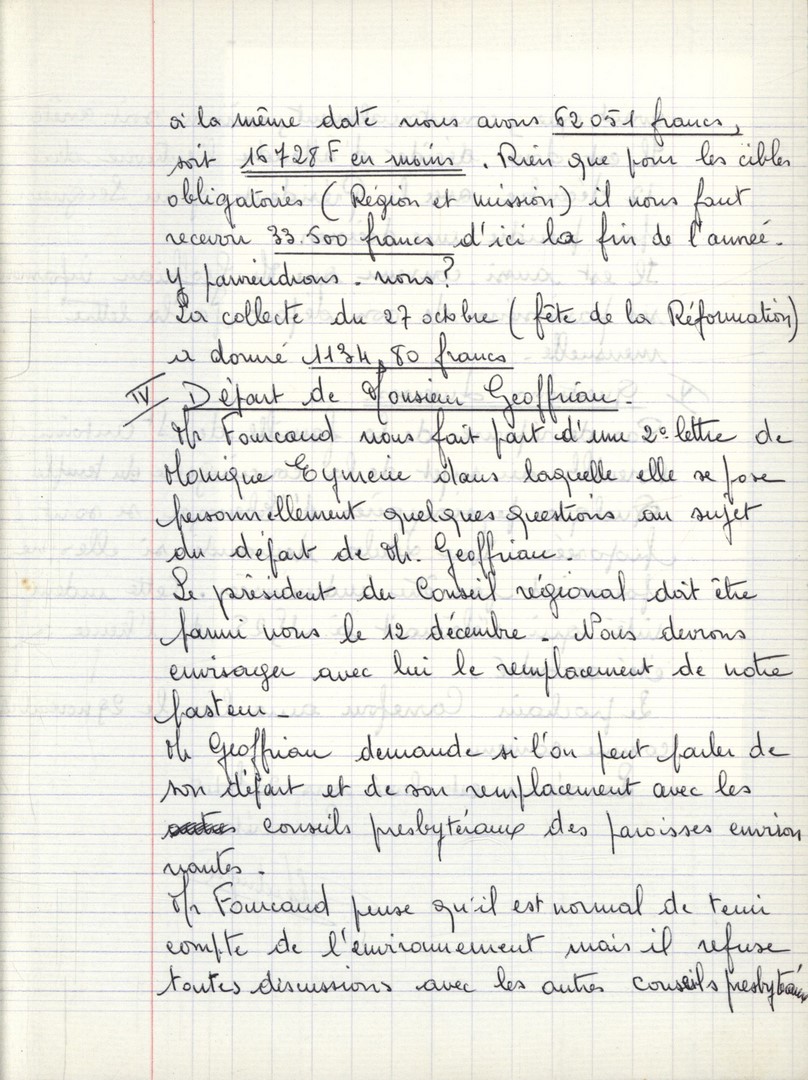 à la même date nous avons 62 051 francs,
soit 16 728 F en moins. Rien que pour les cibles
obligatoires (Région et mission) il nous faut
recevoir 33.500 francs d'ici la fin de l'année.
Y parviendrons-nous?
La collecte du 27 octobre (fête de la Réformation)
a donné 1134,80 francs
IV Départ de Monsieur Geoffriau
Mr Fourcaud nous fait part d'une 2e lettre de
Monique Eymerie dans laquelle elle se pose
personnellement quelques questions au sujet
du départ de M. Geoffriau.
Le président du Conseil régional doit être
parmi nous le 12 décembre. Nous devrons
envisager avec lui le remplacement de notre
pasteur.
M Geoffriau demande si l'on peut parler de
son départ et de son remplacement avec les
conseils presbytéraux des paroisses environ
nantes.
Mr Fourcaud pense qu'il est normal de tenir
compte de l'environnement mais il refuse
toutes discussions avec les autres conseils presbytéraux